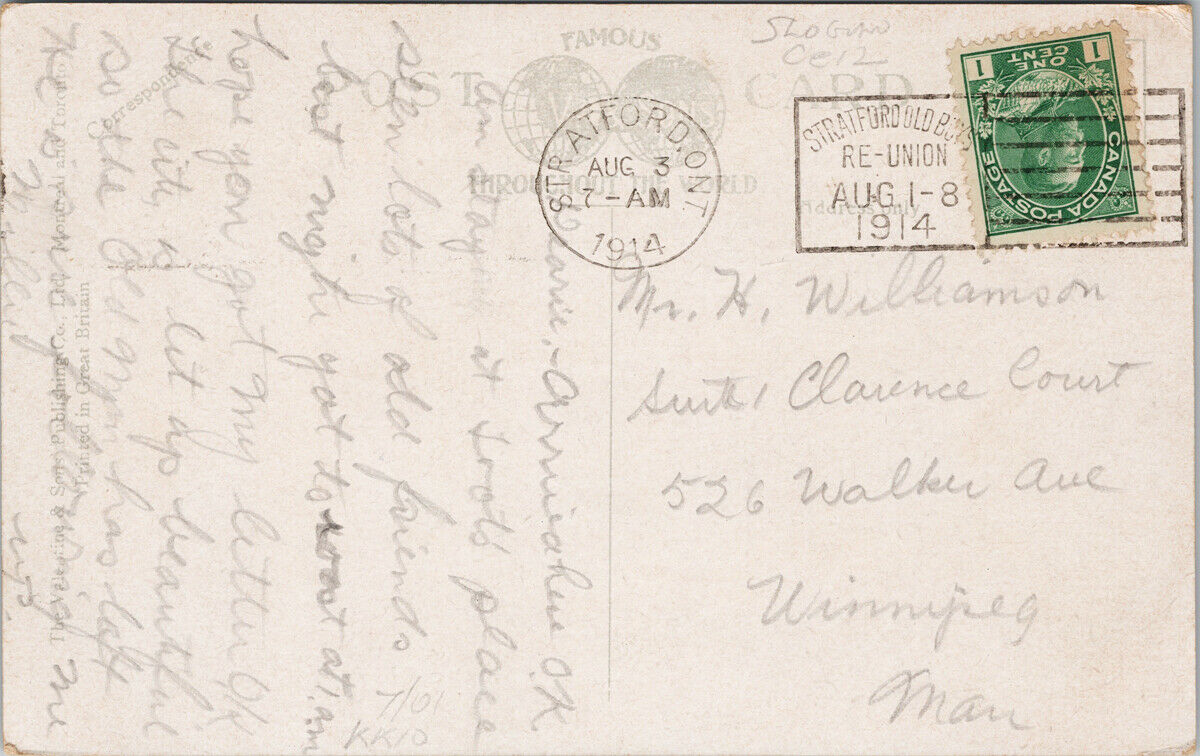 FAMOUS
POST CARD
THROUGHOUT THE WORLD
SLOGAN
STRATFORD, ONT
AUG 3
7-AM
1914
STRATFORD OLD BOYS
RE-UNION
AUG 1-8
1914
1 ONE CENT 1
CANADA POSTAGE
Address only
Mr. H. Williamson
Clarence Court
526 Walker Ave
Winnipeg
Man
Correspondence
arrived here OK
am staying at place
seen lots of old friends
last night got to at 1 am
hope you got my letter OK
the city is lit up beautiful
so the old man has left
The Valentine & Sons Publishing Co., Ltd. Montreal and Toronto.
Printed in Great Britain
7/01
KK10